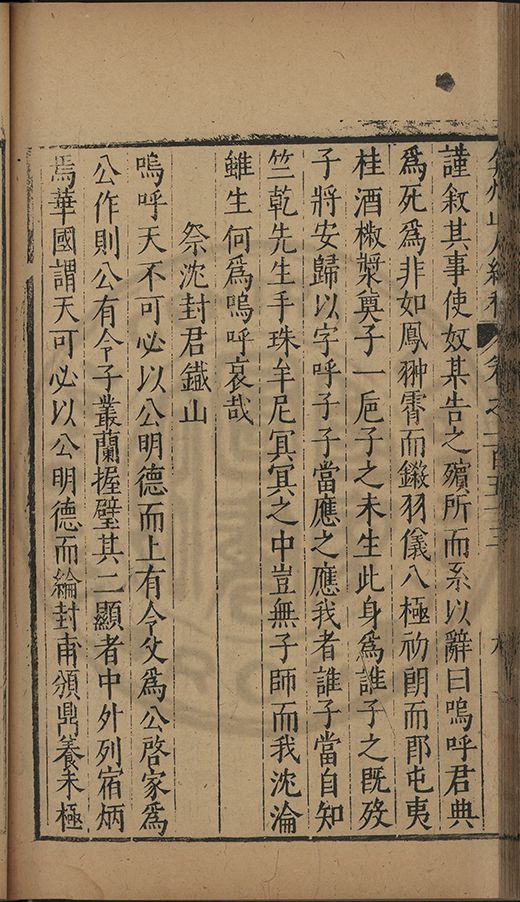 弇州山人續稿 卷之一百五十三 九
謹敘其事使奴某告之殯所而系以辭曰嗚呼君典
為死為非如鳳翀霄而鎩羽儀八極初朗而屯夷
桂酒椒漿奠子一巵子之未生此身為誰子之既歿
子將安歸以字呼子子當應之應我者誰子當自知
竺乾先生手珠牟尼㝠㝠之中豈無子師而我沈淪
雖生何為嗚呼哀哉
祭沈封君鐵山
嗚呼天不可必以公明德而上有令父為公啓家為
公作則公有令子叢蘭握璧其二顯者中外列宿炳
焉華國謂天可必以公明德而綸封甫頒鼎養未極